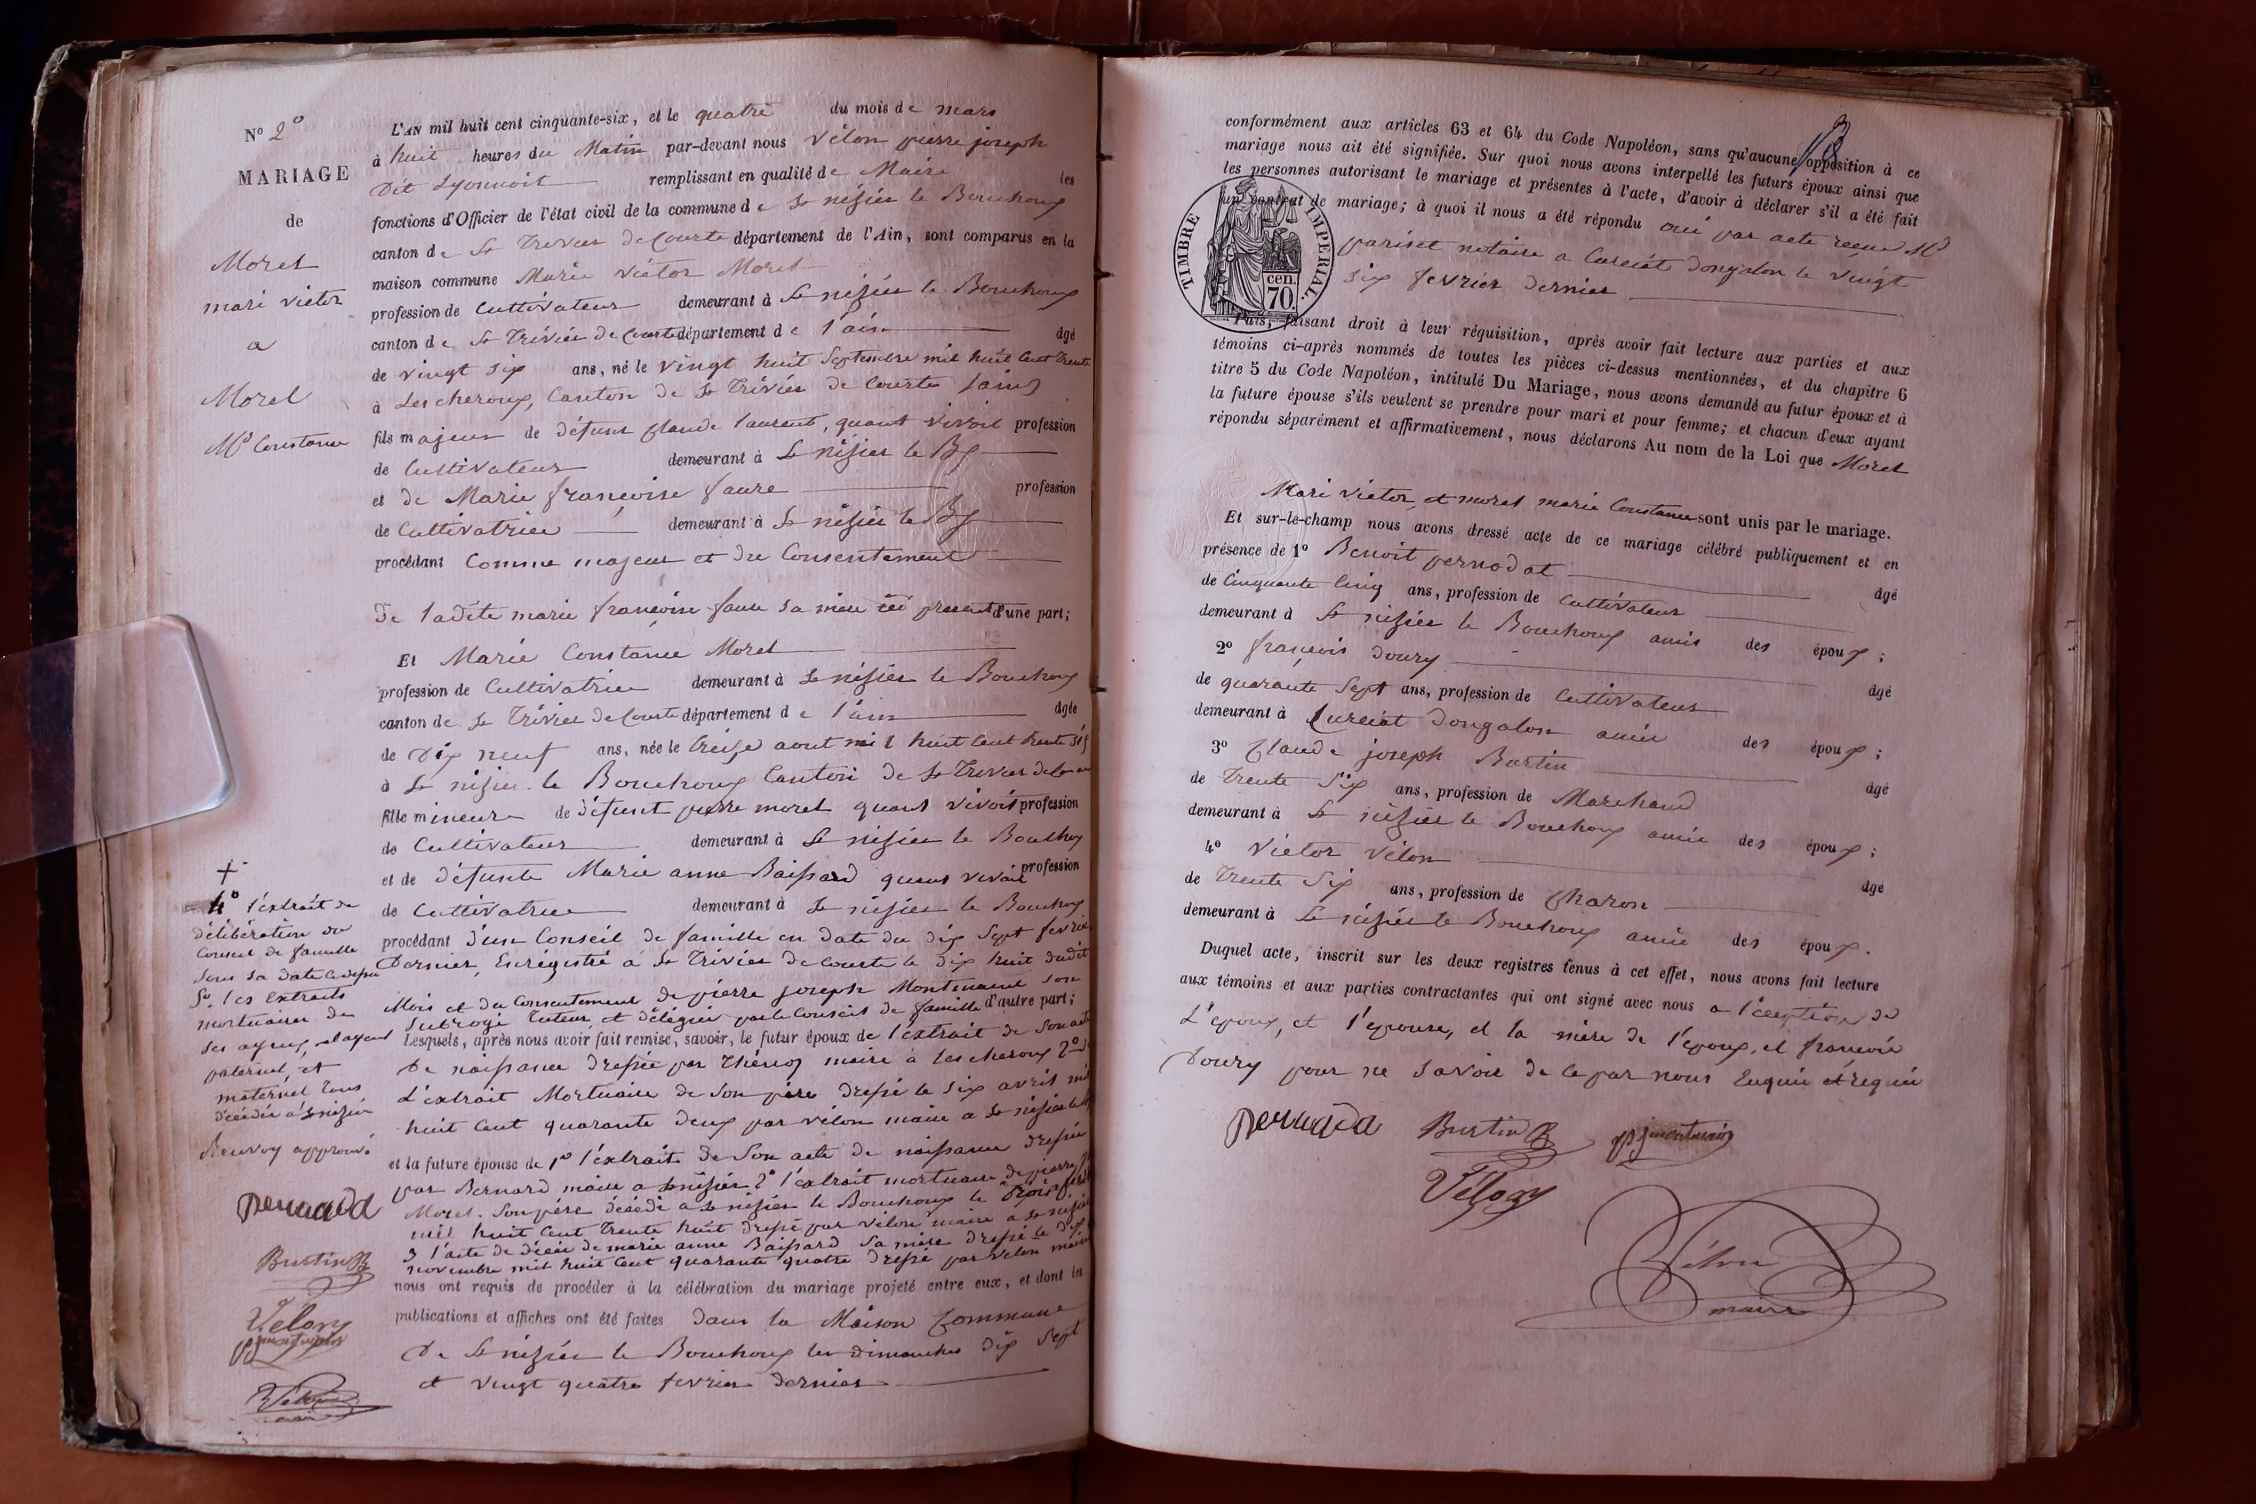 N° 2°
MARIAGE
de
Morel
mari victor
a
Morel
Mie Constance
L'AN mil huit cent cinquante-six, et le quatre du mois de mars
à huit heures du Matin par-devant nous Vélon pierre joseph
Dit Lyonnoit remplissant en qualité de Maire les
fonctions d'Officier de l'état civil de la commune de St nizier le Bouchoux
canton de St Trivier de Courte département de l'Ain, sont comparus en la
maison commune Marie victor Morel
profession de Cultivateur demeurant à St nizier le Bouchoux
canton de St Trivier de Courte département de l'ain âgé
de vingt six ans, né le vingt huit Septembre mil huit Cent Trente
à Lescheroux, Canton de St Trivier de Courte (ain)
fils majeur de défunt Claude laurent, quant vivoit profession
de Cultivateur demeurant à St nizier le Bx
et de Marie françoise faure profession
de Cultivatrice demeurant à St nizier le Bx
procédant Comme majeur et du Consentement
De ladite marie françoise faure sa mère ici presente d'une part;
Et Marie Constance Morel
profession de Cultivatrice demeurant à St nizier le Bouchoux
canton de St Trivier de Courte département de l'ain âgée
de Dix neuf ans, née le treize aout mil huit Cent trente six
à St nizier le Bouchoux Canton de St Trivier de Courte
fille mineure de défunt pierre morel quant vivoit profession
de Cultivateur demeurant à St nizier le Bouchoux
et de défunte Marie anne Baissard quant vivait profession
de Cultivatrice demeurant à St nizier le Bouchoux
procédant d'un Conseil de famille en date du dix Sept fevrier
Dernier, Enregistré a St Trivier de Courte le dix huit dudit
Mois et du Consentement de pierre joseph Montimene son
Subrogé Tuteur, et délégué par le Conseil de famille d'autre part;
Lesquels, après nous avoir fait remise, savoir, le futur époux de l'extrait de Son acte
De naissance dressé par Thévoz maire à Lescheroux 2° de
L'extrait Mortuaire de Son père dressé le Six avril mil
huit Cent quarante deux par vélon maire a St nizier le Bx
et la future épouse de 1° l'extrait de Son acte de naissance dressé
par Bernard maire a St nizier 2° l'extrait mortuaire de pierre
Morel. Son père décédé a St nizier le Bouchoux le trois
mil huit Cent Trente huit dressé par vélon maire a St nizier
3 l'acte de décès de marie anne Baissard Sa mère dressé le dix
novembre mil huit Cent quarante quatre dressé par vélon maire
nous ont requis de procéder à la célébration du mariage projeté entre eux, et dont les
publications et affiches ont été faites dans la Maison Commune
De St nizier le Bouchoux les dimanches dix Sept
et vingt quatre fevrier dernier
+
4° l'extrait de
délibération du
Conseil de famille
sous sa date ci dessus
5° les extraits
mortuaires de
ses ayeux, et ayeul
paternel, et
maternel tous
décédés a St nizier
Renvoy approuvé
Bernard
Burtin
Velon
PJ montimene
Vélon
maire
conformément aux articles 63 et 64 du Code Napoléon, sans qu'aucune opposition à ce
mariage nous ait été signifiée. Sur quoi nous avons interpellé les futurs époux ainsi que
les personnes autorisant le mariage et présentes à l'acte, d'avoir à déclarer s'il a été fait
un contrat de mariage; à quoi il nous a été répondu oui par acte reçu Me
pariset notaire a Curciat dongalon le vingt
six fevrier dernier
TIMBRE IMPERIAL.
70 cen.
Puis, faisant droit à leur réquisition, après avoir fait lecture aux parties et aux
témoins ci-après nommés de toutes les pièces ci-dessus mentionnées, et du chapitre 6
titre 5 du Code Napoléon, intitulé Du Mariage, nous avons demandé au futur époux et à
la future épouse s'ils veulent se prendre pour mari et pour femme; et chacun d'eux ayant
répondu séparément et affirmativement, nous déclarons Au nom de la Loi que Morel
Mari victor, et morel marie Constance sont unis par le mariage.
Et sur-le-champ nous avons dressé acte de ce mariage célébré publiquement et en
présence de 1° Benoit pernodat âgé
de Cinquante Cinq ans, profession de Cultivateur
demeurant à St nizier le Bouchoux amis des époux;
2° françois Doury âgé
de quarante Sept ans, profession de Cultivateur
demeurant à Curciat Dongalon amie des époux;
3° Claude joseph Burtin âgé
de Trente Six ans, profession de Marchand
demeurant à St nizier le Bouchoux amie des époux;
4° Victor Vélon âgé
de Trente Six ans, profession de Charon
demeurant à St nizier le Bouchoux amie des époux.
Duquel acte, inscrit sur les deux registres tenus à cet effet, nous avons fait lecture
aux témoins et aux parties contractantes qui ont signé avec nous a l'éception de
L'époux, et l'epouse, et la mère de l'epoux, et françois
Doury pour ne Savoir de ce par nous Enquis et requis
Burtin
PJ montimene
Vélon
Vélon
maire